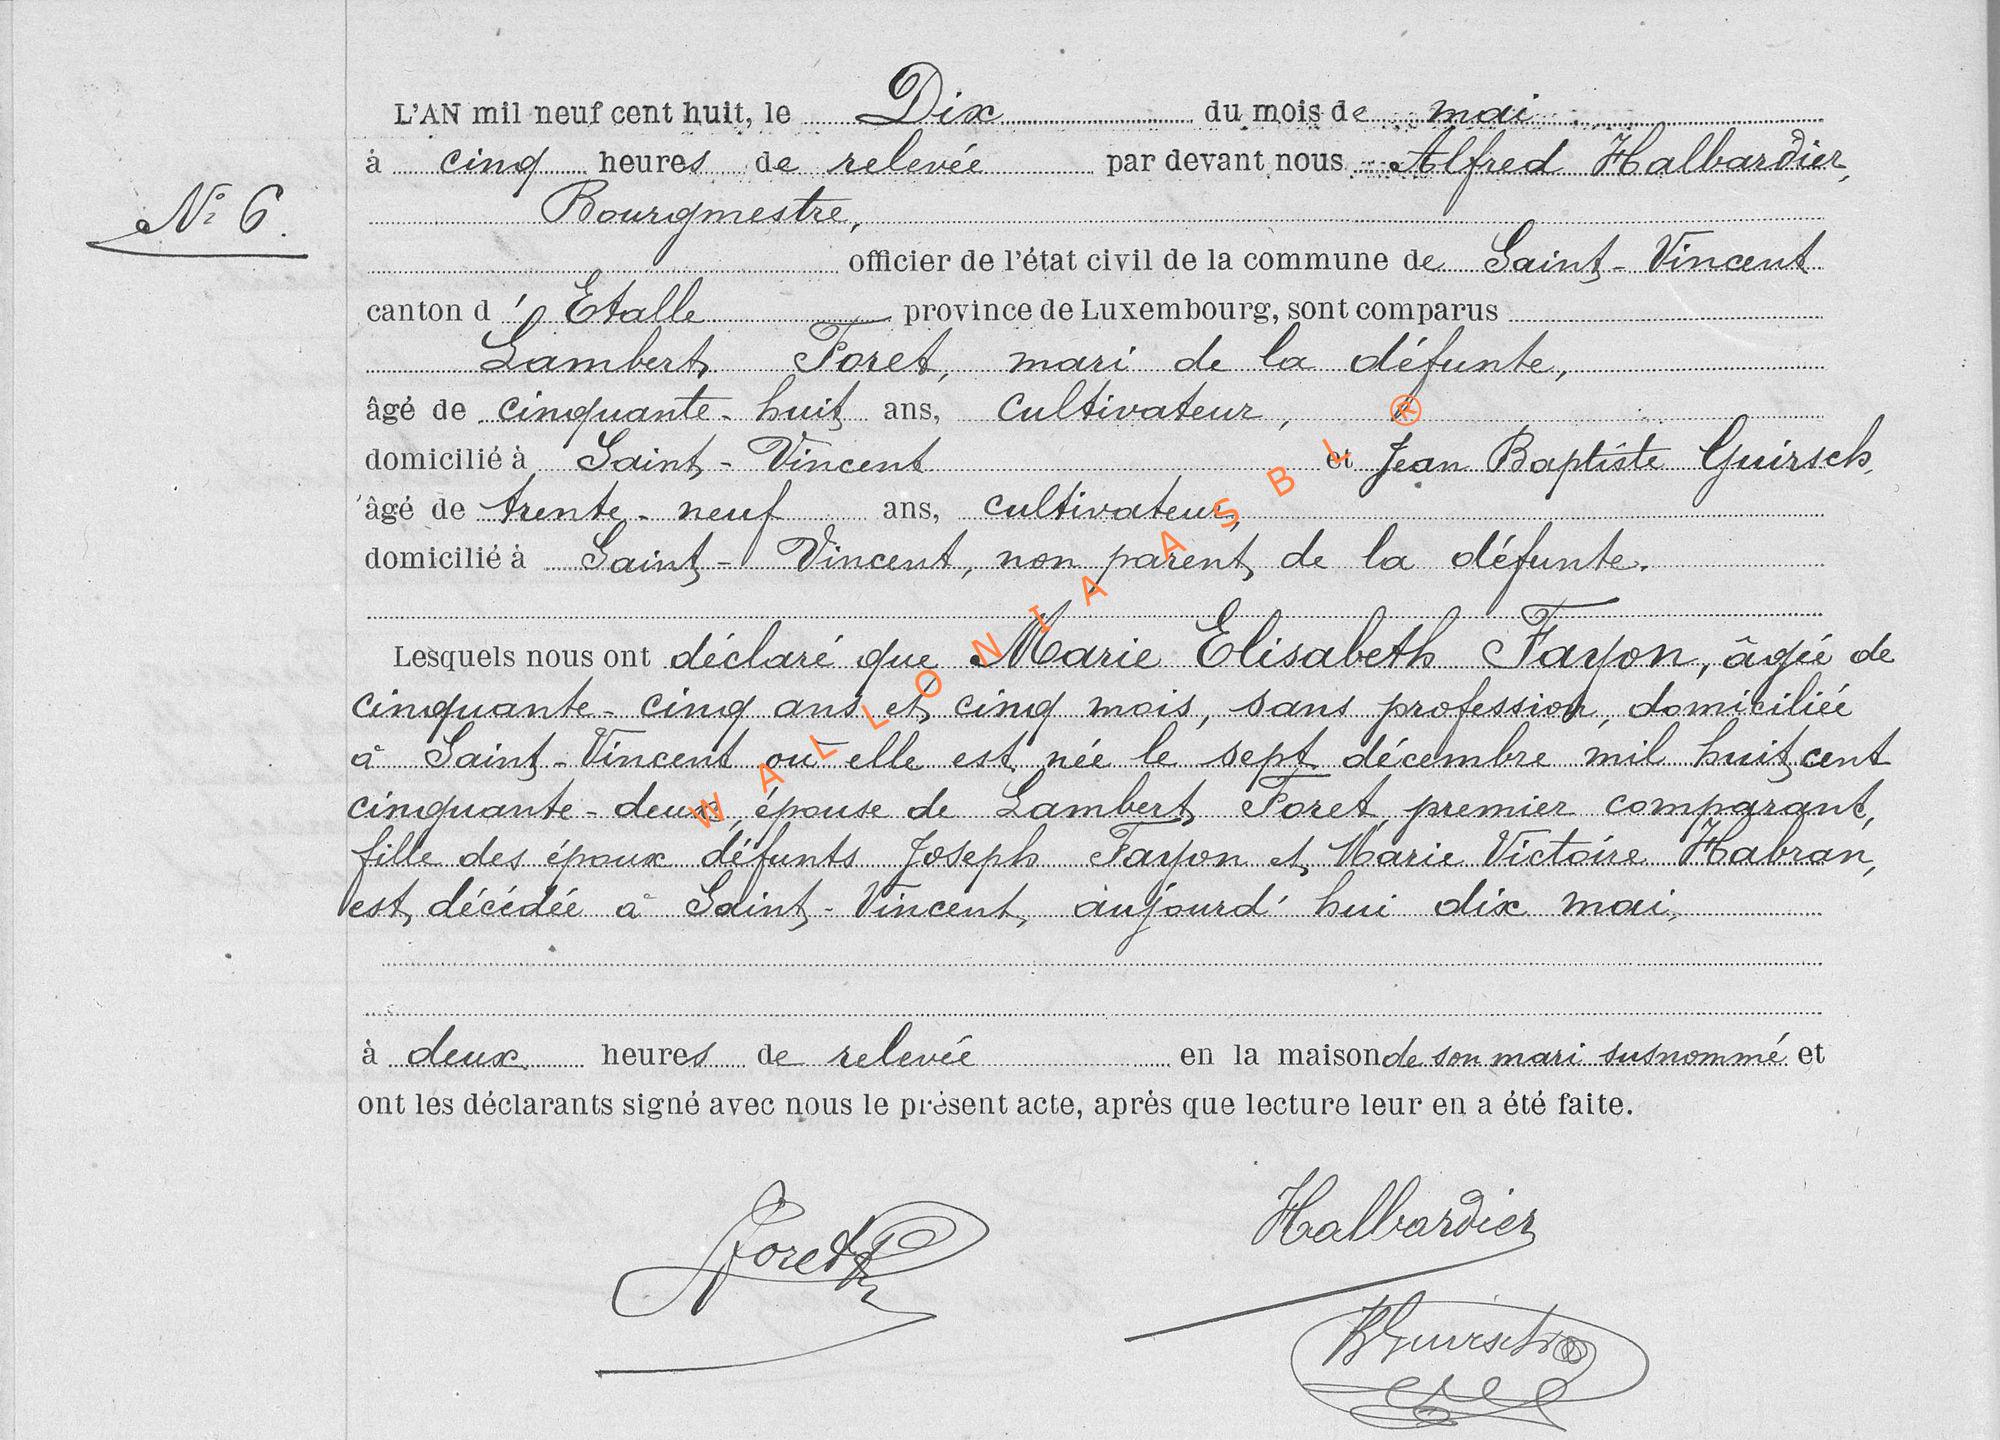 L'AN mil neuf cent huit, le Dix du mois de mai
à cinq heures de relevée par devant nous Alfred Halbardier,
Nº 6.
Bourgmestre,
officier de l'état civil de la commune de Saint-Vincent
canton d' Etalle province de Luxembourg, sont comparus
Lambert Foret, mari de la défunte,
âgé de cinquante-huit ans, cultivateur,
domicilié à Saint-Vincent et Jean Baptiste Guirsch,
âgé de trente-neuf ans, cultivateur,
domicilié à Saint-Vincent, non parent de la défunte.
Lesquels nous ont déclaré que Marie Elisabeth Fayon, âgée de
cinquante-cinq ans et cinq mois, sans profession, domiciliée
à Saint-Vincent où elle est née le sept décembre mil huit cent
cinquante-deux, épouse de Lambert Foret, premier comparant,
fille des époux défunts Joseph Fayon et Marie Victoire Habran,
est décédée à Saint-Vincent, aujourd'hui dix mai,
à deux heures de relevée en la maison de son mari susnommé et
ont les déclarants signé avec nous le présent acte, après que lecture leur en a été faite.
Foret
Halbardier
JBGuirsch
WALLONIA ASBL ®